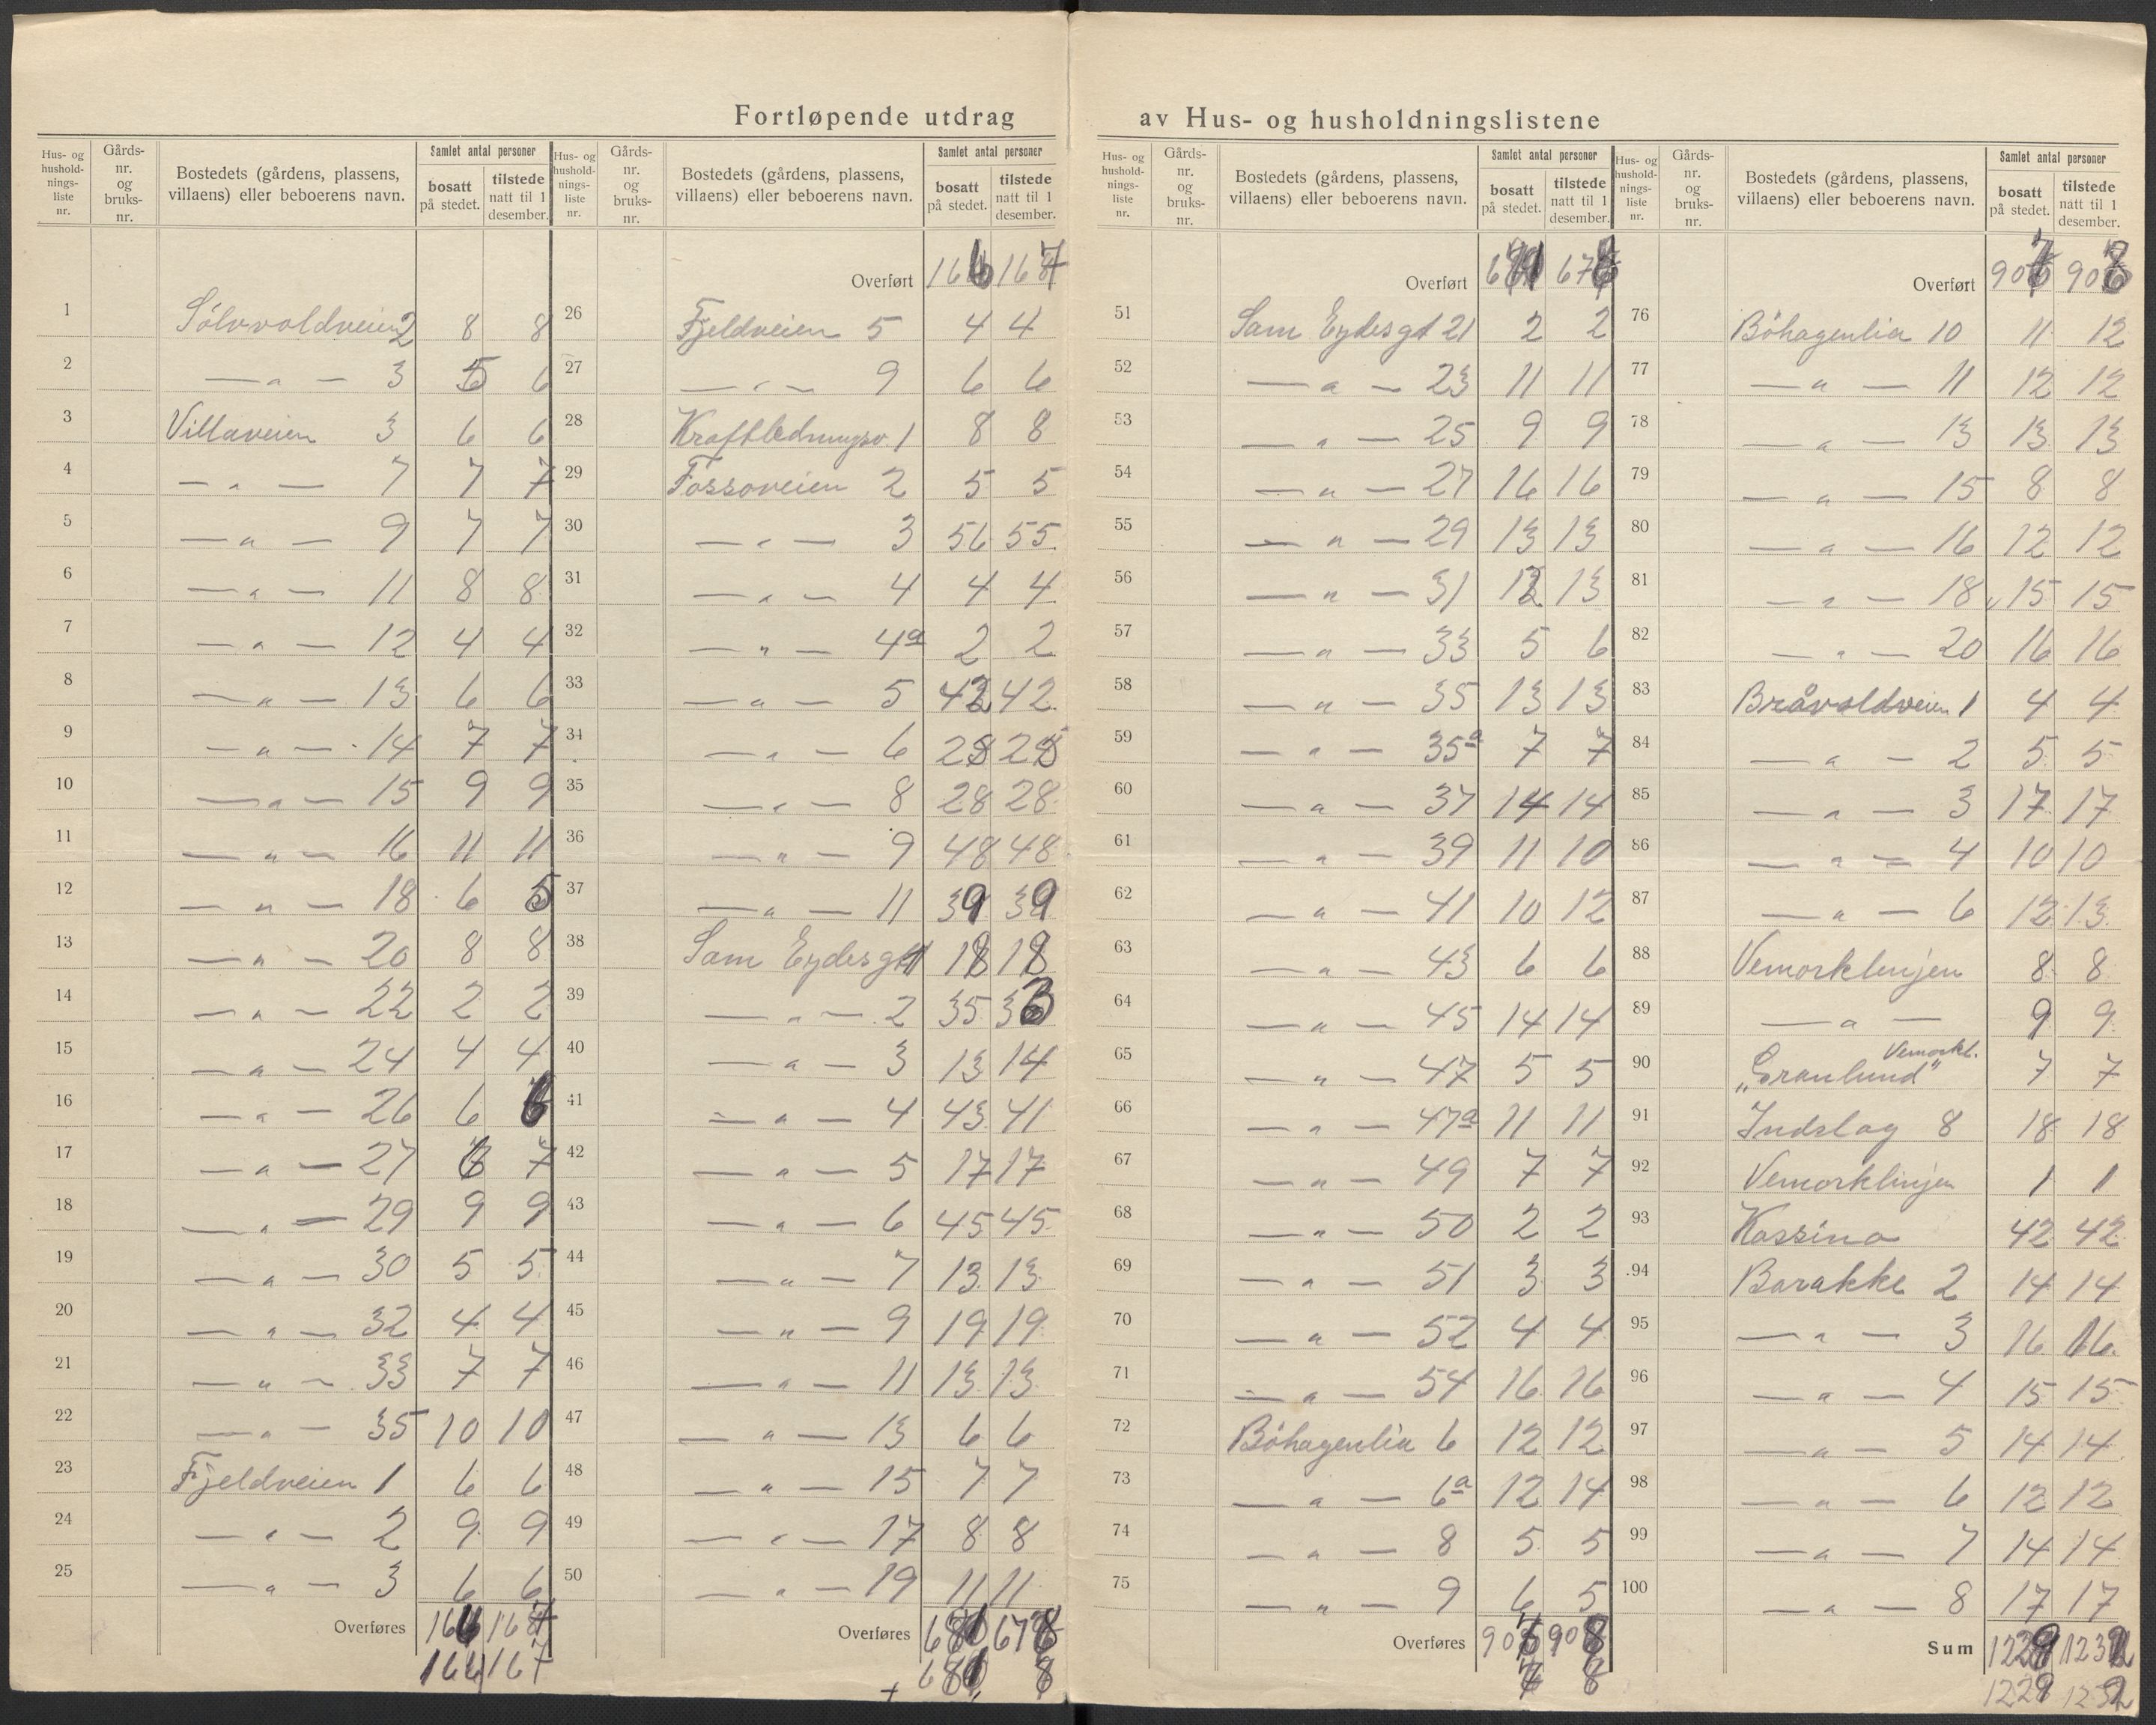 Fortløpende utdrag av Hus- og husholdningslistene
Hus- og husholdnings- liste nr. | Gårds- nr. og bruks- nr. | Bostedets (gårdens, plassens, villaens) eller beboerens navn. | Samlet antal personer | bosatt på stedet. | tilstede natt til 1 desember.
1 Sølvvoldveien 2 8 8
2 — " — 3 5 6
3 Villaveien 3 6 6
4 — " — 7 7 7
5 — " — 9 7 7
6 — " — 11 8 8
7 — " — 12 4 4
8 — " — 13 6 6
9 — " — 14 7 7
10 — " — 15 9 9
11 — " — 16 11 11
12 — " — 18 6 5
13 — " — 20 8 8
14 — " — 22 2 2
15 — " — 24 4 4
16 — " — 26 6
17 — " — 27 6 7
18 — " — 29 9 9
19 — " — 30 5 5
20 — " — 32 4 4
21 — " — 33 7 7
22 — " — 35 10 10
23 Fjeldveien 1 6 6
24 — " — 2 9 9
25 — " — 3 6 6
Overføres 166 167
166 167
Hus- og husholdnings- liste nr. | Gårds- nr. og bruks- nr. | Bostedets (gårdens, plassens, villaens) eller beboerens navn. | Samlet antal personer | bosatt på stedet. | tilstede natt til 1 desember.
Overført 166 167
26 Fjeldveien 5 4 4
27 — " — 9 6 6
28 Kraftledningsv. 1 8 8
29 Fossoveien 2 5 5
30 — " — 3 56 55
31 — " — 4 4 4
32 — " — 4a 2 2
33 — " — 5 42 42
34 — " — 6 28 28
35 — " — 8 28 28
36 — " — 9 48 48
37 — " — 11 39 39
38 Sam Eydesgt 1 18 18
39 — " — 2 35 33
40 — " — 3 13 14
41 — " — 4 43 41
42 — " — 5 17 17
43 — " — 6 45 45
44 — " — 7 13 13
45 — " — 9 19 19
46 — " — 11 13 13
47 — " — 13 6 6
48 — " — 15 7 7
49 — " — 17 8 8
50 — " — 19 11 11
Overføres 681 678
681 8
Hus- og husholdnings- liste nr. | Gårds- nr. og bruks- nr. | Bostedets (gårdens, plassens, villaens) eller beboerens navn. | Samlet antal personer | bosatt på stedet. | tilstede natt til 1 desember.
Overført 681 678
51 Sam Eydesgt 21 2 2
52 — " — 23 11 11
53 — " — 25 9 9
54 — " — 27 16 16
55 — " — 29 13 13
56 — " — 31 12 13
57 — " — 33 5 6
58 — " — 35 13 13
59 — " — 35a 7 7
60 — " — 37 14 14
61 — " — 39 11 10
62 — " — 41 10 12
63 — " — 43 6 6
64 — " — 45 14 14
65 — " — 47 5 5
66 — " — 47a 11 11
67 — " — 49 7 7
68 — " — 50 2 2
69 — " — 51 3 3
70 — " — 52 4 4
71 — " — 54 16 16
72 Bøhagenlia 6 12 12
73 — " — 6a 12 14
74 — " — 8 5 5
75 — " — 9 6 5
Overføres 907 908
7 8
Hus- og husholdnings- liste nr. | Gårds- nr. og bruks- nr. | Bostedets (gårdens, plassens, villaens) eller beboerens navn. | Samlet antal personer | bosatt på stedet. | tilstede natt til 1 desember.
Overført 907 908
76 Bøhagenlia 10 11 12
77 — " — 11 12 12
78 — " — 13 13 13
79 — " — 15 8 8
80 — " — 16 12 12
81 — " — 18 15 15
82 — " — 20 16 16
83 Bråvoldveien 1 4 4
84 — " — 2 5 5
85 — " — 3 17 17
86 — " — 4 10 10
87 — " — 6 12 13
88 Vemorklinjen 8 8
89 — " — 9 9
90 „Granlund" Vemorkl. 7 7
91 Indslag 8 18 18
92 Vemorklinjen 1 1
93 Kassino 42 42
94 Barakke 2 14 14
95 — " — 3 16 16
96 — " — 4 15 15
97 — " — 5 14 14
98 — " — 6 12 12
99 — " — 7 14 14
100 — " — 8 17 17
Sum 1229 1232
1229 1232